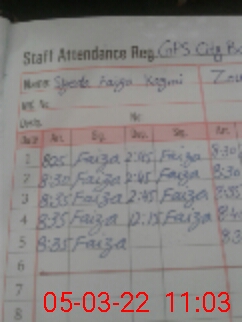 Staff Attendance Reg. GPS City B
Name Syeda Faiza Kazmi
No.
Date Arr. Sig. Dep. Sig. Arr.
1 8:05 Faiza 2:45 Faiza 8:30
2 8:30 Faiza 2:45 Faiza 8:30
3 8:35 Faiza 2:45 Faiza 8:35
4 8:35 Faiza 12:15 Faiza 8:4
5 8:35 Faiza
6
7
8
05-03-22 11:03